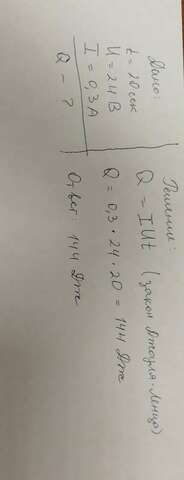 Дано:
t = 20 сек
U = 24 В
I = 0,3 А
Q - ?
Решение:
Q = IUt (закон Джоуля-Ленца)
Q = 0,3 · 24 · 20 = 144 Дж
Ответ: 144 Дж